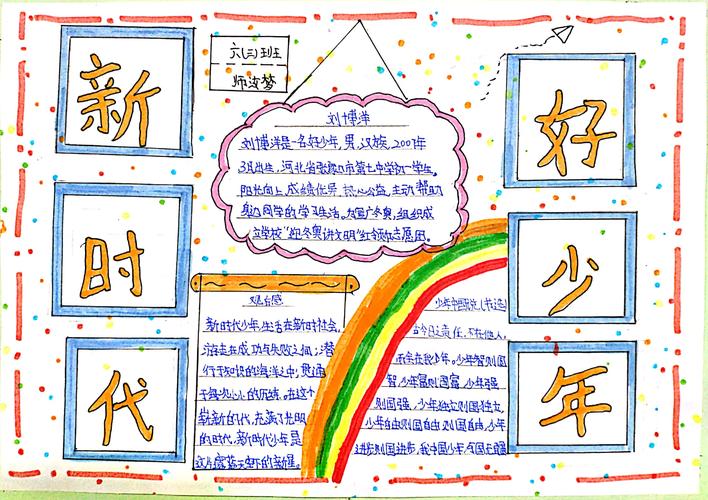 新
时
代
六(三)班
师
刘博洋
刘博洋是一名好少年,男,汉族,2007年
3月出生,河北省张家口市第七中学初一学生。
阳光向上,成绩优异,热心公益,主动帮助
身边同学的学习生活。为宣广冬奥,组织成
立学校“迎冬奥讲文明”红领巾志愿团。
观后感
新时代少年,生活在新时社会,
游走在成功与失败之间;潜
行于知识的海洋之中,
于每
新的时代,充满了光明
的时代,新时代少年是
这片蓝天下的新星。
少年中国说(节选)
故今日之责任,不在他人,
而全在我少年。少年智则国
智,少年富则国富,少年强
则国强,少年独立则国独立,
少年自由则国自由,少年
进步则国进步,我中国少年,与国无疆
好
少
年